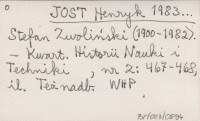 o JOST Henryk 1983...
Stefan Zwoliński (1900-1982).
– Kwart. Historii Nauki i
Techniki , nr 2: 467-468,
il. Toż nadb. WHP